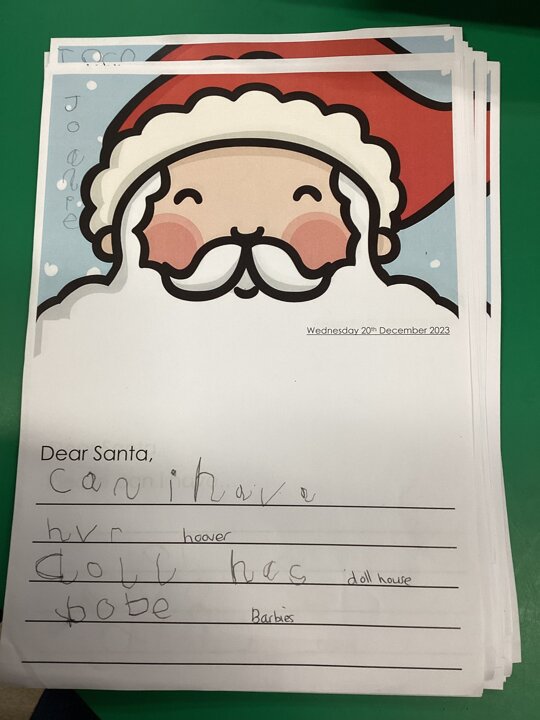 Wednesday 20th December 2023
Dear Santa,
can i hava
hvr hoover
doll has doll house
bobe Barbies